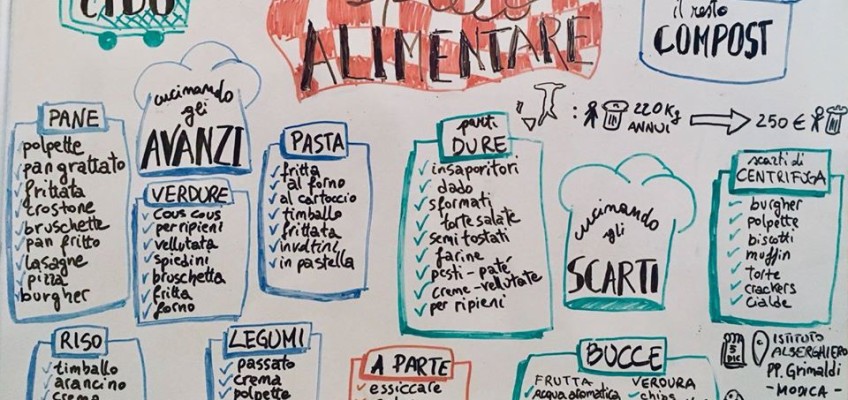 ALIMENTARE
il resto
COMPOST
cucinando
gli
AVANZI
PANE
polpette
pan grattato
frittata
crostone
bruschette
pan fritto
lasagne
pizza
burger
VERDURE
cous cous
per ripieni
vellutata
spiedini
bruschetta
fritta
forno
PASTA
fritta
al forno
al cartoccio
timballo
frittata
involtini
in pastella
parti
DURE
insaporitori
dado
sformati
torte salate
semi tostati
farine
pesti - paté
creme - vellutate
per ripieni
: 220 Kg
ANNUI
250 €
cucinando
gli
SCARTI
scarti di
CENTRIFUGA
burgher
polpette
biscotti
muffin
torte
crackers
cialde
RISO
timballo
arancino
crema
LEGUMI
passato
crema
polpette
A PARTE
essiccare
BUCCE
FRUTTA
acqua aromatica
VERDURA
chips
5
DIC
ISTITUTO
ALBERGHIERO
PP. Grimaldi
- MODICA -